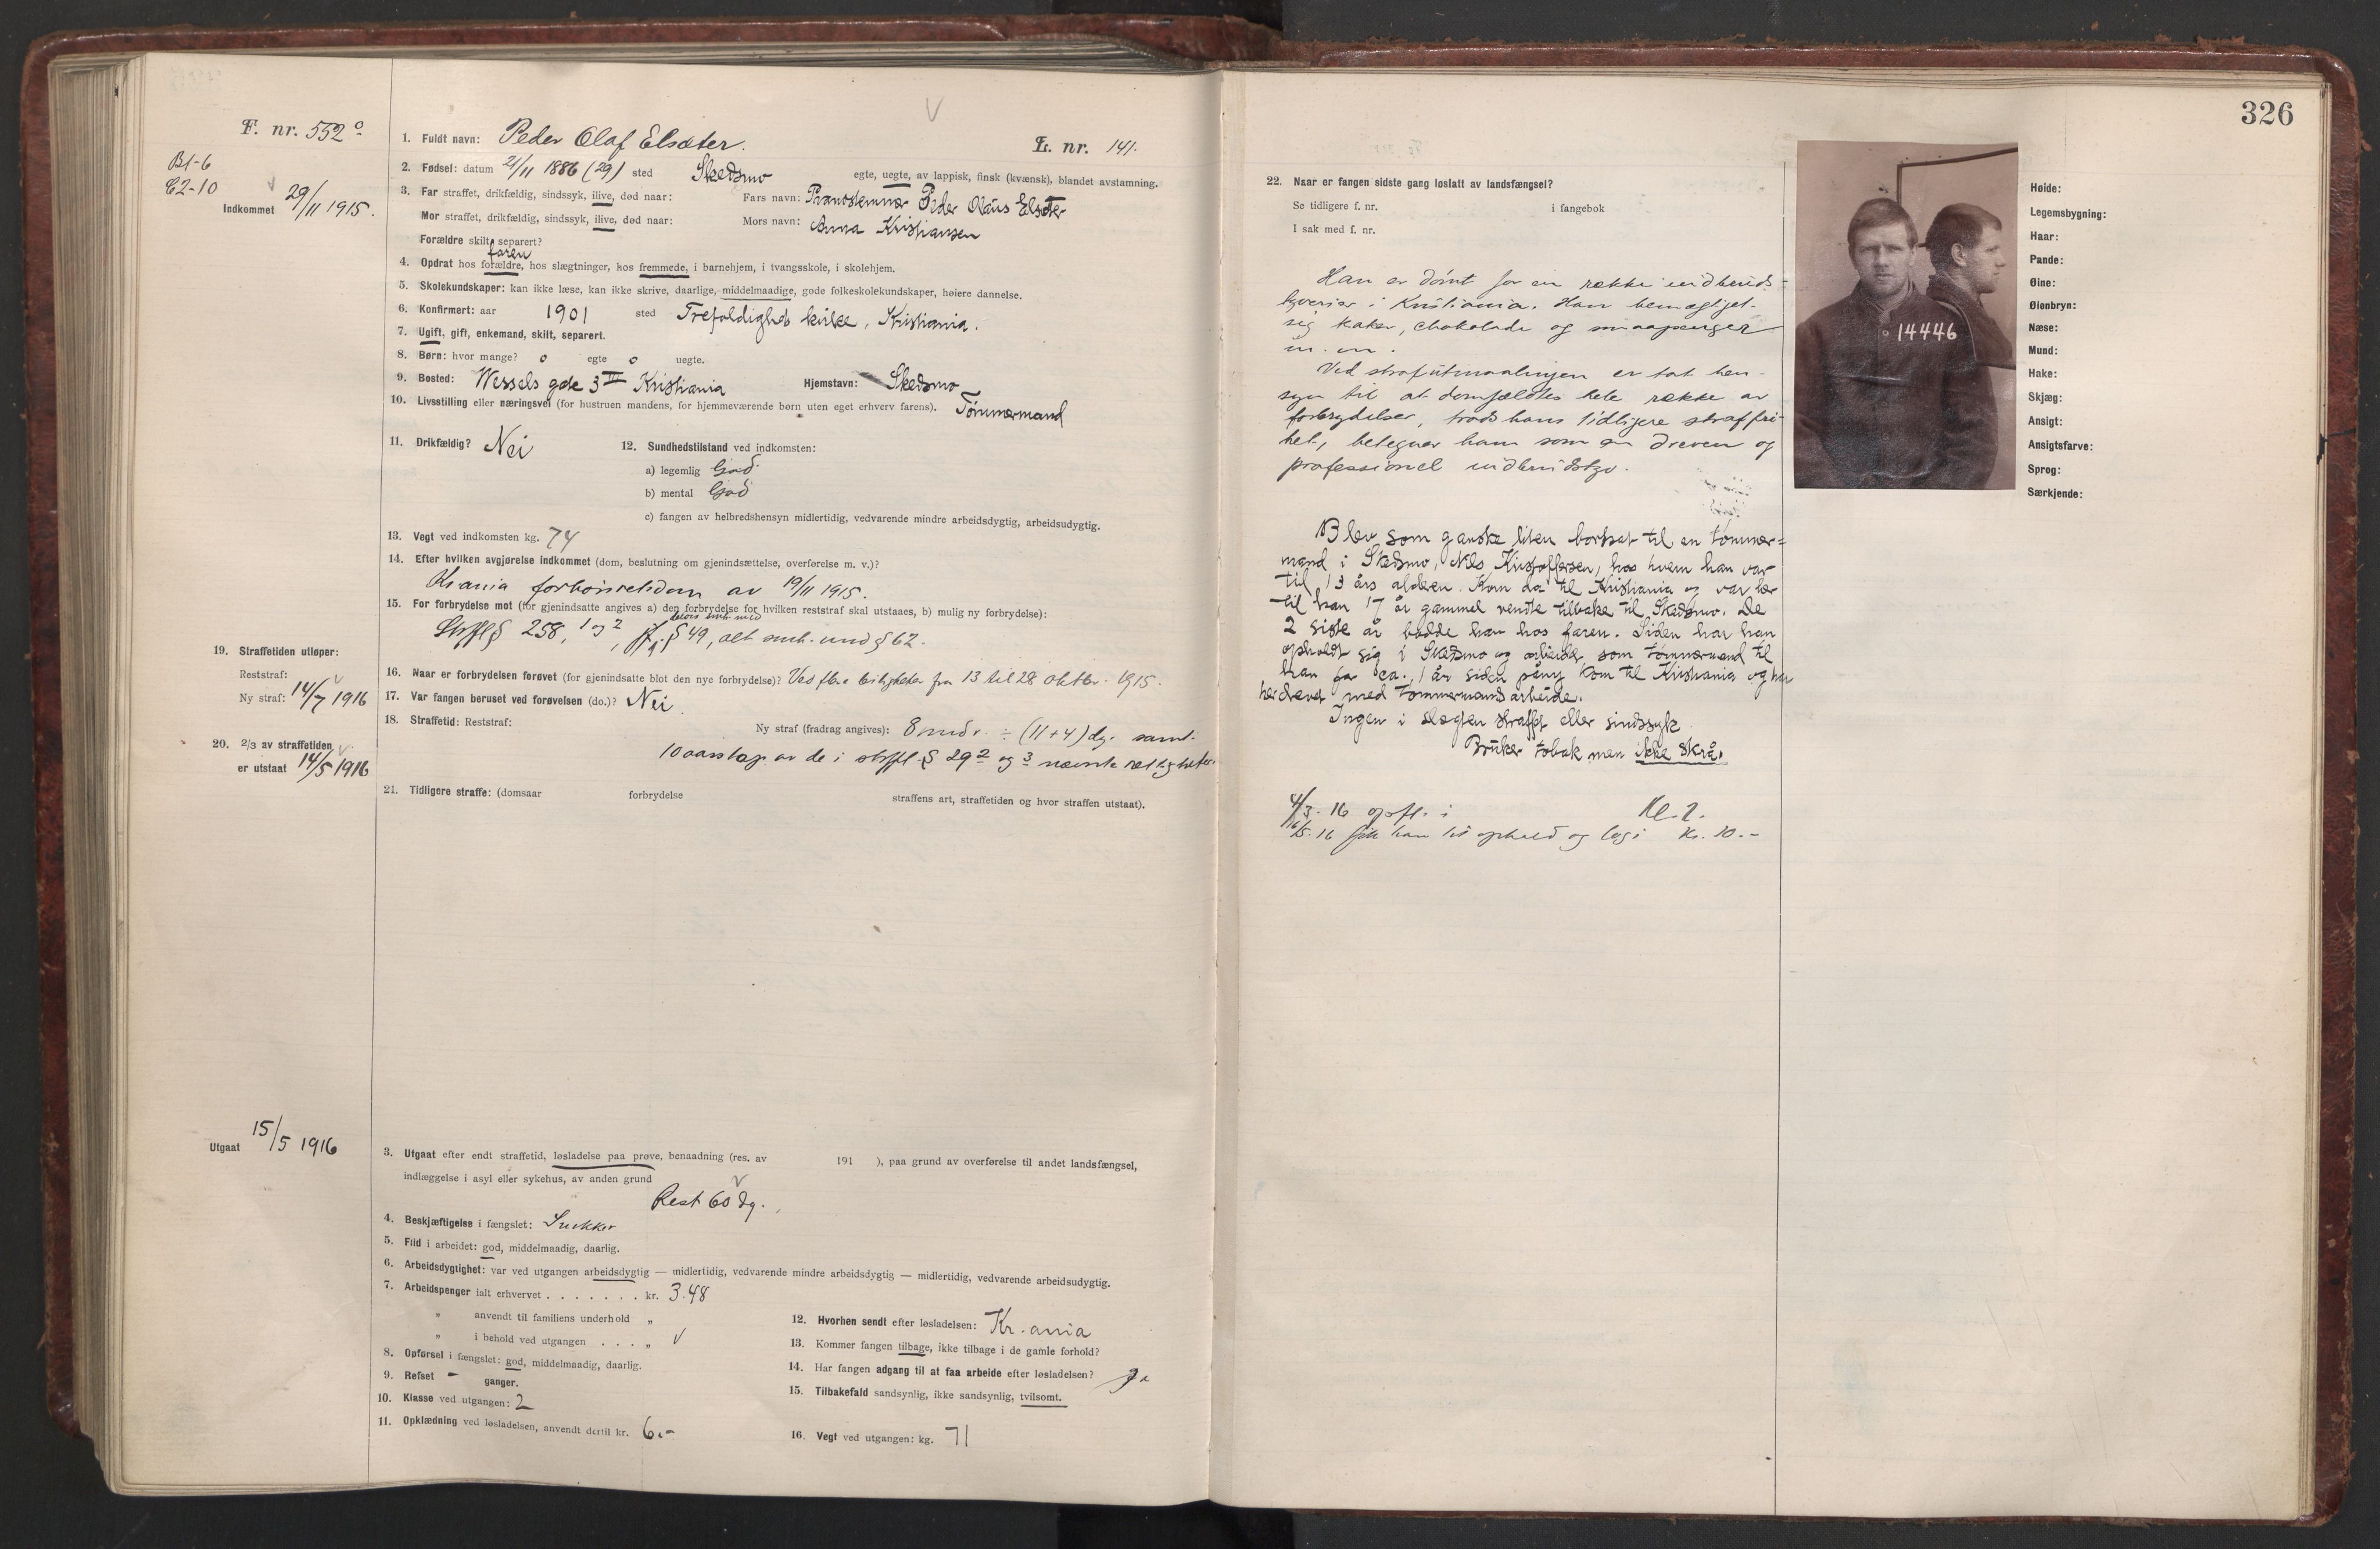 F. nr. 552º
B1-6
C2-10
Indkommet 29/11 1915.
1. Fuldt navn: Peder Olaf Elsæter.
L. nr. 141.
2. Fødsel: datum 21/11 1886 (29) sted Skedsmo egte, uegte, av lappisk, finsk (kvænsk), blandet avstamning.
3. Far straffet, drikfældig, sindssyk, ilive, død naar: Fars navn: Peder Olaus Elsæter
Mor straffet, drikfældig, sindssyk, ilive, død naar: Mors navn: Anna Kristiansen
Forældre skilt, separert?
faren
4. Opdrat hos forældre, hos slægtninger, hos fremmede, i barnehjem, i tvangsskole, i skolehjem.
5. Skolekundskaper: kan ikke læse, kan ikke skrive, daarlige, middelmaadige, gode folkeskolekundskaper, høiere dannelse.
6. Konfirmert: aar 1901 sted Trefoldigheds kirke, Kristiania.
7. Ugift, gift, enkemand, skilt, separert.
8. Børn: hvor mange? 0 egte 0 uegte.
9. Bosted: Wessels gde 3 III Kristiania Hjemstavn: Skedsmo
10. Livsstilling eller næringsvei (for hustruen mandens, for hjemmeværende børn uten eget erhverv farens). Tømmermand
11. Drikfældig? Nei
12. Sundhedstilstand ved indkomsten:
a) legemlig God
b) mental God
c) fangen av helbredshensyn midlertidig, vedvarende mindre arbeidsdygtig, arbeidsudygtig.
13. Vegt ved indkomsten kg. 74
14. Efter hvilken avgjørelse indkommet (dom, beslutning om gjenindsættelse, overførelse m. v.)?
Krania forhørsretsdom av 19/11 1915.
15. For forbrydelse mot (for gjenindsatte angives a) den forbrydelse for hvilken reststraf skal utstaaes, b) mulig ny forbrydelse):
delvis smh. med
Strfl § 258, 1 og 2, jfr. § 49, alt smh. med § 62.
16. Naar er forbrydelsen forøvet (for gjenindsatte blot den nye forbrydelse)? Ved flere leiligheter fra 13 til 28 oktbr. 1915.
17. Var fangen beruset ved forøvelsen (do.)? Nei.
18. Straffetid: Reststraf: Ny straf (fradrag angives): 8 mndr. ÷ (11+4) dg. samt
10 aars tap av de i strfl. § 29 2 og 3 nævnte rettigheter.
19. Straffetiden utløper:
Reststraf:
Ny straf: 14/7 1916
20. 2/3 av straffetiden
er utstaat 14/5 1916
21. Tidligere straffe: (domsaar forbrydelse straffens art, straffetiden og hvor straffen utstaat).
Utgaat 15/5 1916
3. Utgaat efter endt straffetid, løsladelse paa prøve, benaadning (res. av 191 ), paa grund av overførelse til andet landsfængsel,
indlæggelse i asyl eller sykehus, av anden grund
Rest 60 dg.
4. Beskjæftigelse i fængslet: Snekker
5. Flid i arbeidet: god, middelmaadig, daarlig.
6. Arbeidsdygtighet: var ved utgangen arbeidsdygtig — midlertidig, vedvarende mindre arbeidsdygtig — midlertidig, vedvarende arbeidsudygtig.
7. Arbeidspenger ialt erhvervet . . . . . . . kr. 3.48
" anvendt til familiens underhold "
" i behold ved utgangen . . . "
8. Opførsel i fængslet: god, middelmaadig, daarlig.
9. Refset - ganger.
10. Klasse ved utgangen: 2
11. Opklædning ved løsladelsen, anvendt dertil kr. 6.-
12. Hvorhen sendt efter løsladelsen: Kr.ania
13. Kommer fangen tilbage, ikke tilbage i de gamle forhold?
14. Har fangen adgang til at faa arbeide efter løsladelsen? Ja
15. Tilbakefald sandsynlig, ikke sandsynlig, tvilsomt.
16. Vegt ved utgangen: kg. 71
326
22. Naar er fangen sidste gang løslatt av landsfængsel?
Se tidligere f. nr. i fangebok
I sak med f. nr.
Han er dømt for en række indbruds-
tyverier i Kristiania. Han bemægtiget
sig kaker, chokolade og smaapenger
m. m.
Ved strafutmaalingen er tat hen-
syn til at domfældtes hele række av
forbrydelser, trods hans tidligere straffri-
het, betegner ham som en dreven og
professionel indbrudstyv.
Blev som ganske liten bortsat til en tømmer-
mand i Skedsmo, Nils Kristoffersen, hos hvem han var
til 13 års alderen. Kom da til Kristiania og var her
til han 17 år gammel vendte tilbake til Skedsmo. De
2 siste år bodde han hos faren. Siden har han
opholdt sig i Skedsmo og arbeidet som tømmermand til
han for ca. 1 år siden påny kom til Kristiania og har
her drevet med tømmermandsarbeide.
Ingen i slægten straffet eller sindssyk
Bruker tobak men ikke skrå.
4/3. 16 opfl. i Kl. 2.
16/5. 16 fik han til ophold og logi Kr. 10.-
14446
Høide:
Legemsbygning:
Haar:
Pande:
Øine:
Øienbryn:
Næse:
Mund:
Hake:
Skjæg:
Ansigt:
Ansigtsfarve:
Sprog:
Særkjende: